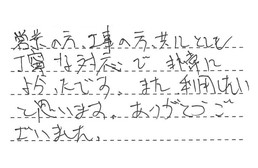 営業の方、工事の方、共にとても
丁寧な対応で非常に
よかったです。また利用したい
と思います。ありがとうご
ざいました。